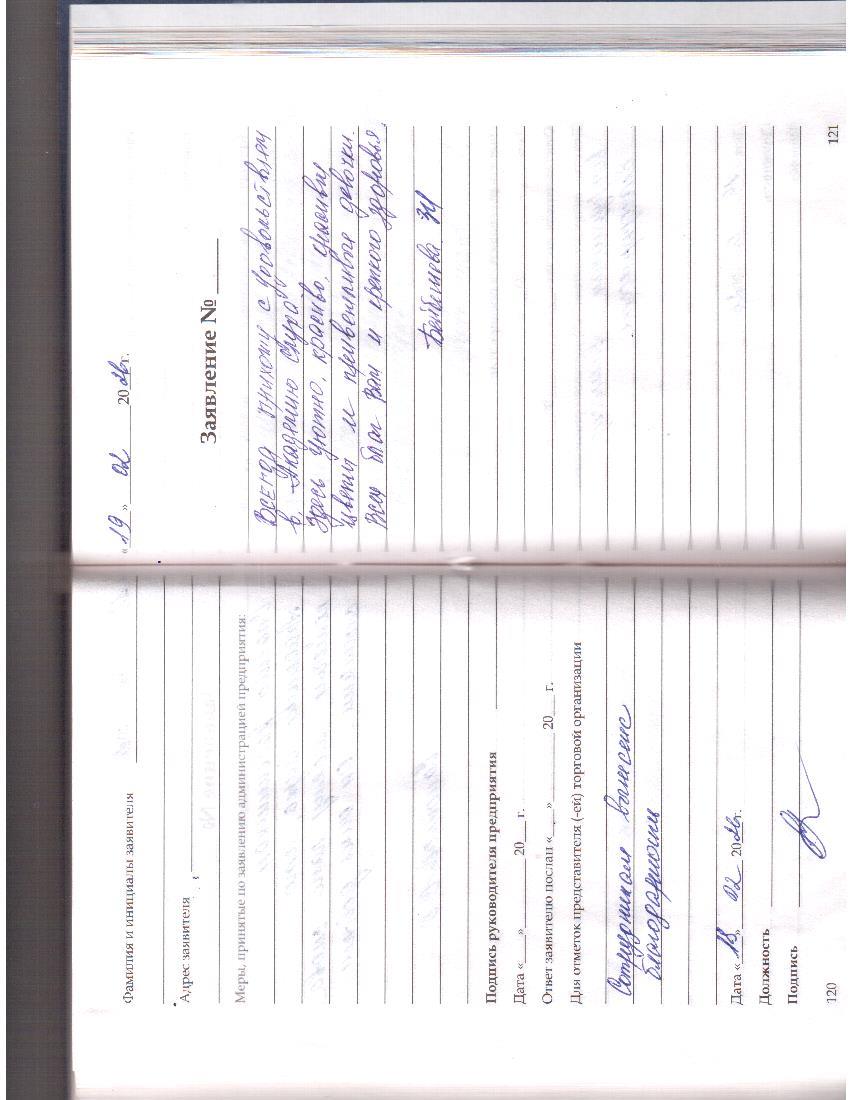 Фамилия и инициалы заявителя
Адрес заявителя
Меры, принятые по заявлению администрацией предприятия:
Подпись руководителя предприятия
Дата «___» ______ 20___ г.
Ответ заявителю послан «___» ______ 20___ г.
Для отметок представителя (-ей) торговой организации
Сотрудникам вынесена
благодарность
Дата « » 02 2026г.
Должность
Подпись
120
«19» 02 2026г.
Заявление № ___
Всегда прихожу с удовольствием
в Академию слуха
Здесь уютно, красиво, красивые
цветы и приветливые девочки.
Всех благ Вам и крепкого здоровья.
121